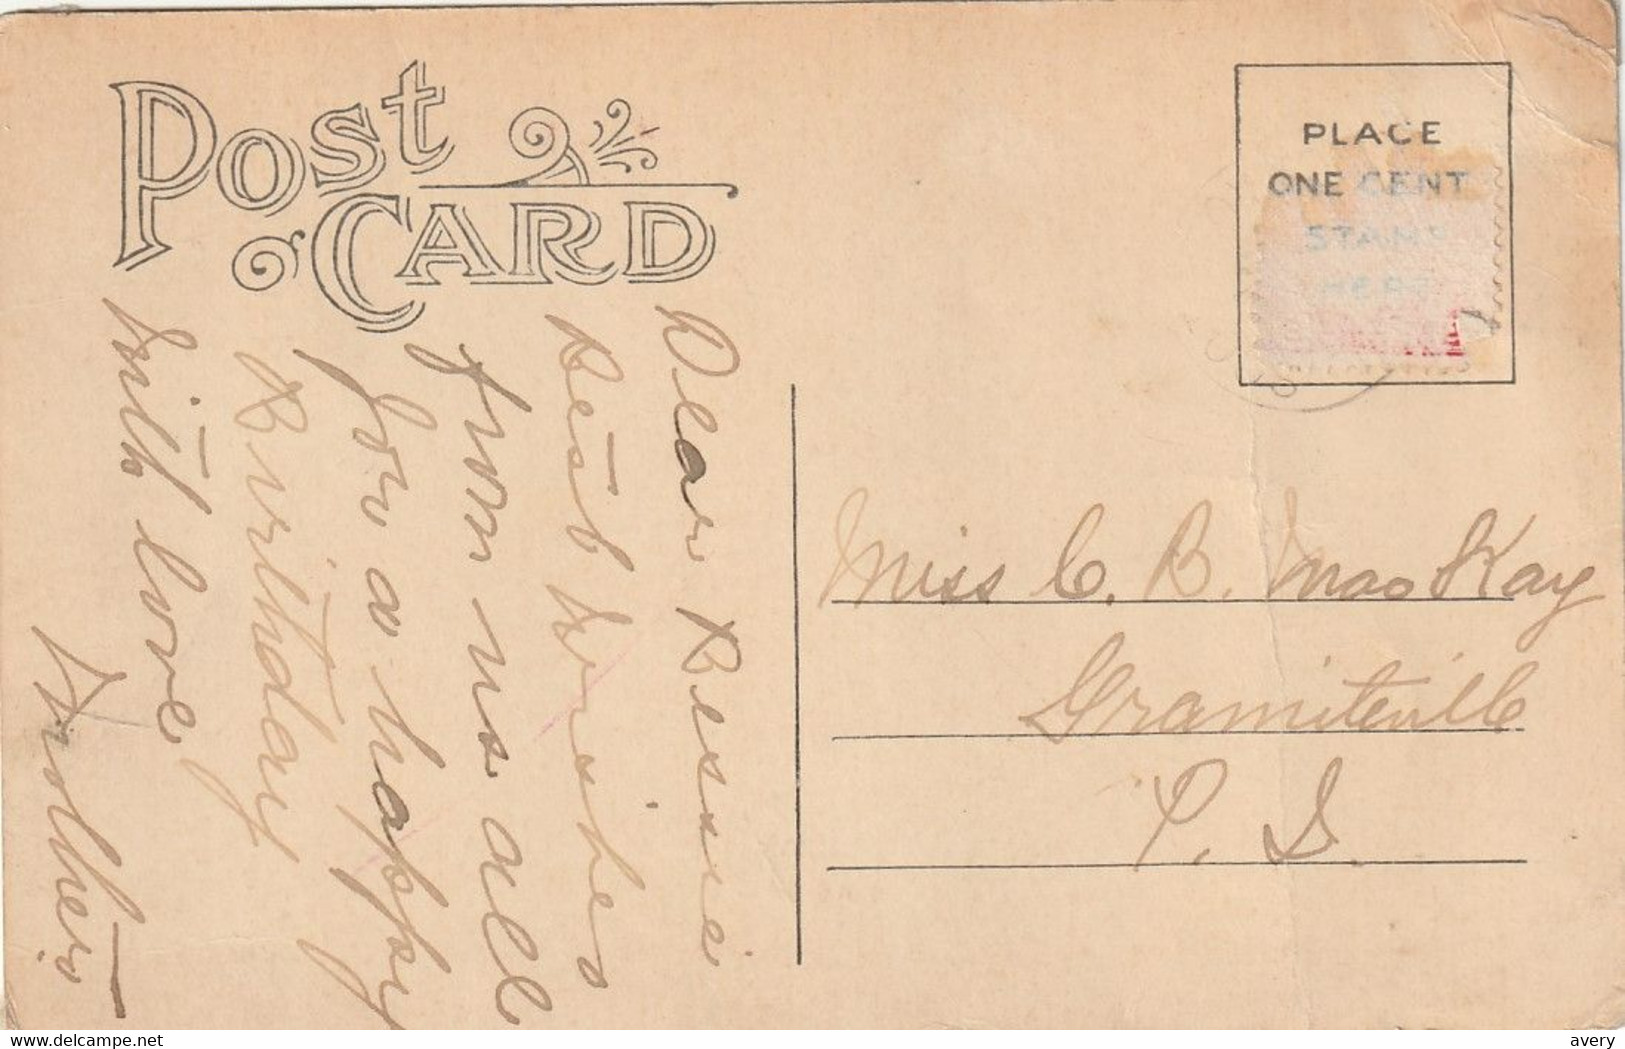 Post
Card
PLACE
ONE CENT
STAMP
HERE
Dear Bessie
Best Wishes
from us all
for a happy
Birthday
with love
Miss C. B. MacKay
Graniteville
P. Q.
delcampe.net
avery